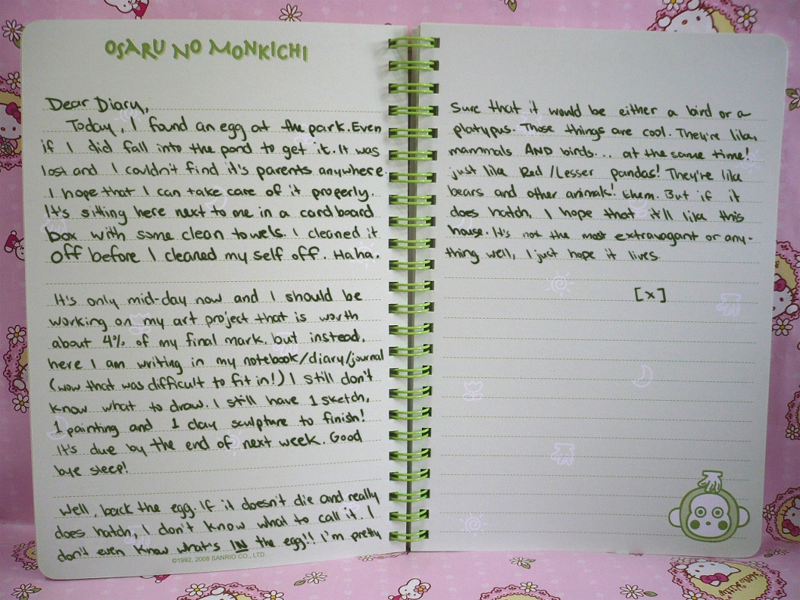 OSARU NO MONKICHI
Dear Diary,
Today, I found an egg at the park. Even
if I did fall into the pond to get it. It was
lost and I couldn't find it's parents anywhere.
I hope that I can take care of it properly.
It's sitting here next to me in a cardboard
box with some clean towels. I cleaned it
off before I cleaned my self off. Haha.
It's only mid-day now and I should be
working on my art project that is worth
about 4% of my final mark. but instead,
here I am writing in my notebook/diary/journal
(wow that was difficult to fit in!) I still don't
know what to draw. I still have 1 sketch,
1 painting and 1 clay sculpture to finish!
It's due by the end of next week. Good
bye sleep!
Well, back the egg. If it doesn't die and really
does hatch, I don't know what to call it. I
don't even know what's IN the egg!! I'm pretty
©1992, 2008 SANRIO CO., LTD.
sure that it would be either a bird or a
platypus. Those things are cool. They're like
mammals AND birds... at the same time!
just like Red/Lesser pandas! They're like
bears and other animals! them. But if it
does hatch, I hope that it'll like this
house. It's not the most extravagant or any-
thing well, I just hope it lives.
[x]